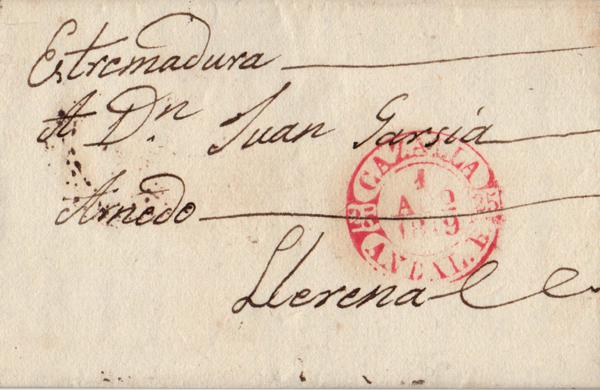 Extremadura
A Dn Juan Garsia
Arnedo
Llerena
CAZALLA
1
1849
ANDAL. B.